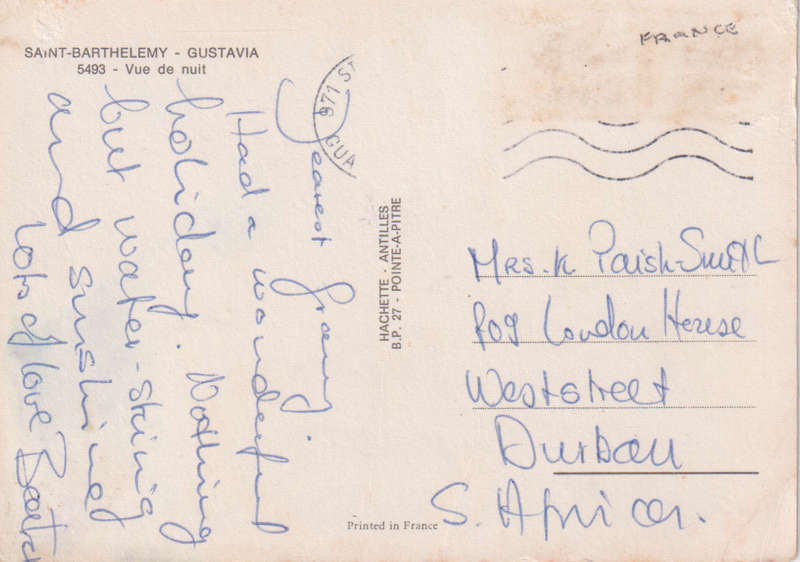 SAINT-BARTHELEMY - GUSTAVIA
5493 - Vue de nuit
FRANCE
971 ST
GUA
Dearest Grany.
Had a wonderful
holiday. Nothing
but water-skiing
and sunshined
lots of love
HACHETTE - ANTILLES
B.P. 27 - POINTE-A-PITRE
Mrs. K Paish-Smith
809 London House
Weststreet
Durban
S. Africa.
Printed in France